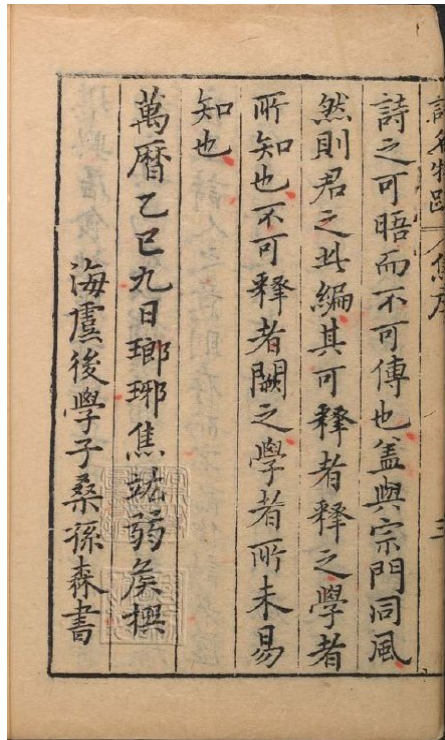 詩之可晤而不可傳也盖與宗門同風
然則君之此編其可釋者釋之學者
所知也不可釋者闕之學者所未易
知也
萬曆乙巳九日瑯琊焦竑弱矦撰
海虞後學子桑孫森書